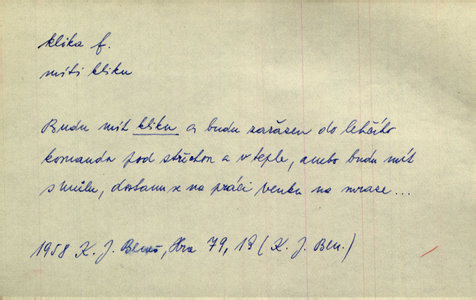 klika f.
míti kliku
Budu mít kliku a budu zařazen do lehčího
komanda pod střechou a v teple, anebo budu mít
smůlu, dostanu x na práci venku na mraze...
1958 K. J. Beneš, 79, 13 (K. J. Ben.)